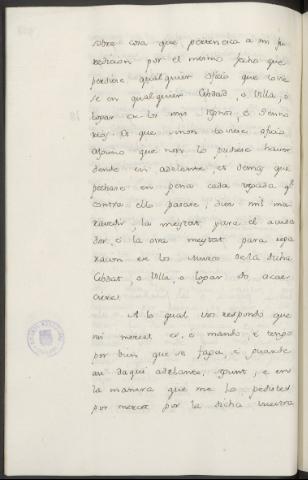 sobre cosa que pertenezca a mi ju
redicion por el mismo fecho que
perdiere qualquier oficio que tovie
se en qualquier Cibdad, o Villa, o
logar en los mis regnos, e Senno
rios. E que non toviere oficio
alguno que non lo pudiese haver
dende en adelante, et demas que
pechase en pena cada vegada q.e
contra ello pasare, dies mil ma
ravedis, la meytat para el acusa
dor, e la otra meytat para repa
racion en los muros de la dicha
Cibdat, o Villa, o logar do acae
ciere.
A lo qual vos respondo que
mi merced es, e mando, e tengo
por bien que se faga, e guarde
en daqui adelante, segunt, e en
la manera que me lo pedistes
por merced por la dicha vuestra